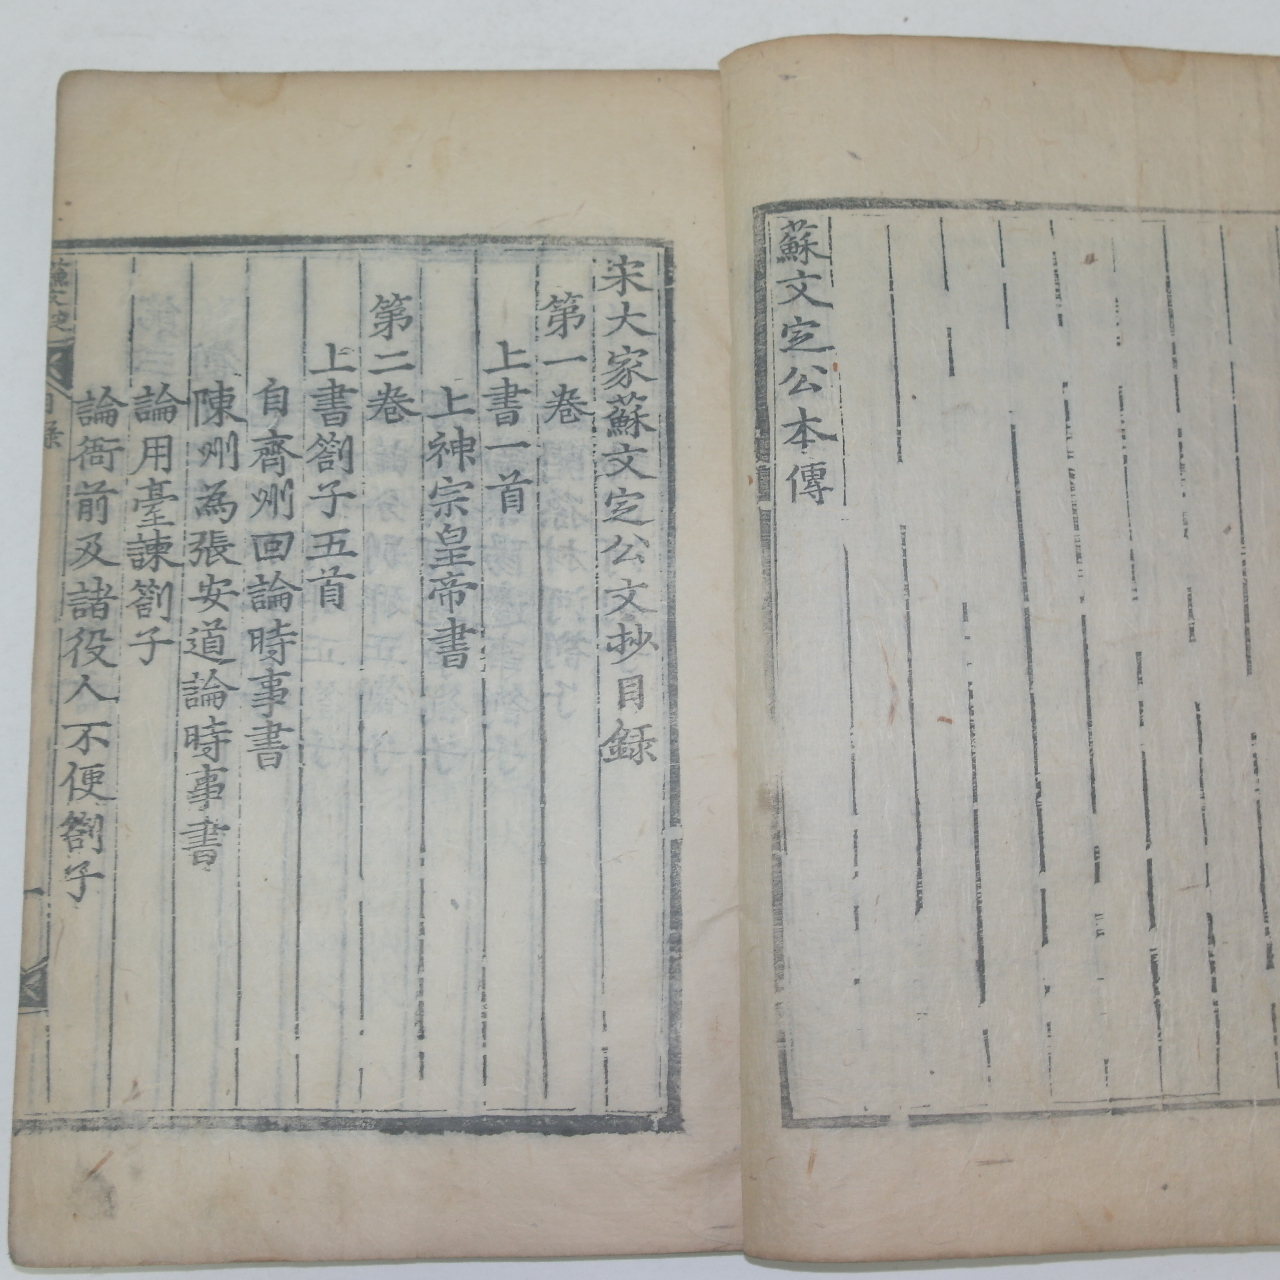 蘇文定公本傳
宋大家蘇文定公文抄目錄
第一卷
上書一首
上神宗皇帝書
第二卷
上書劄子五首
自齊州回論時事書
陳州為張安道論時事書
論用臺諫劄子
論衙前及諸役人不便劄子
目錄
一